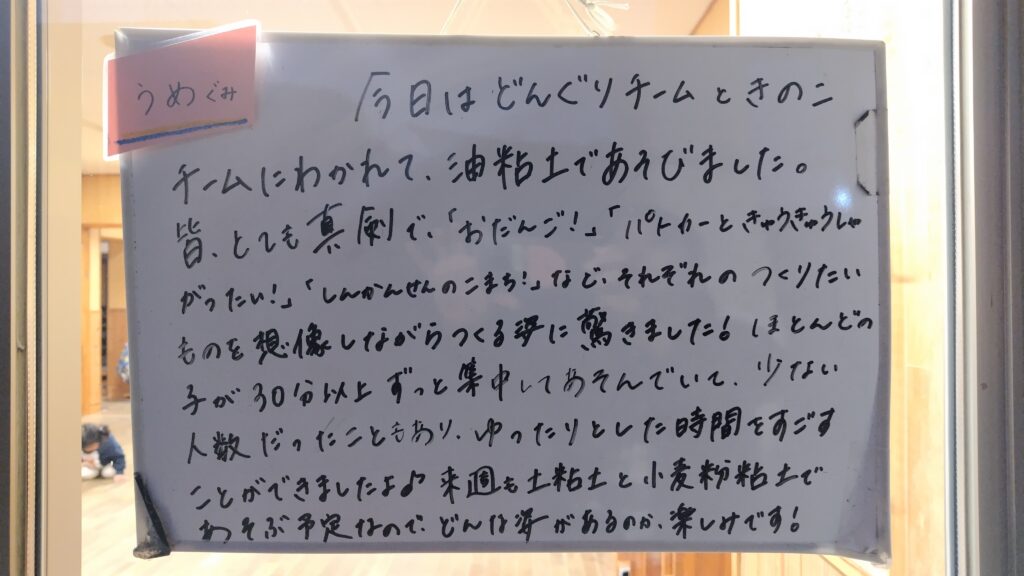 うめぐみ
今日はどんぐりチームときのこ
チームにわかれて、油粘土であそびました。
皆、とても真剣で、「おだんご!」「パトカーときゅうきゅうしゃ
がったい!」「しんかんせんのこまち!」など、それぞれの つくりたい
ものを想像しながらつくる姿に驚きました! ほとんどの
子が30分以上ずっと集中してあそんでいて、少ない
人数だったこともあり、ゆったりとした時間をすごす
ことができましたよ♪ 来週も土粘土と小麦粉粘土で
あそぶ予定なので、どんな姿があるのか、楽しみです!